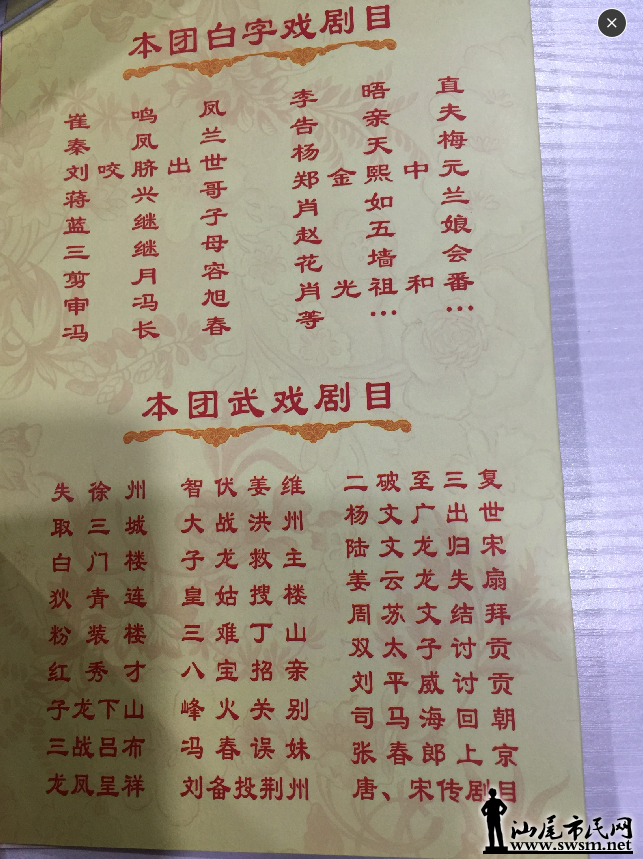 本团白字戏剧目
崔鸣凤
秦凤兰
刘咬脐出世
蒋兴哥
蓝继子
三继母
剪月容
审冯旭
冯长春
李晤直
告亲夫
杨天梅
郑金熙中元
肖如兰
赵五娘
花墙会
肖光祖和番
等……
本团武戏剧目
失徐州
取三城
白门楼
狄青连
粉装楼
红秀才
子龙下山
三战吕布
龙凤呈祥
智伏姜维
大战洪州
子龙救主
皇姑搜楼
三难丁山
八宝招亲
峰火关别
冯春误妹
刘备投荆州
二破至三复
杨文广出世
陆文龙归宋
姜云龙失扇
周苏文结拜
双太子讨贡
刘平威讨贡
司马海回朝
张春郎上京
唐、宋传剧目
汕尾市民网
www.swsm.net